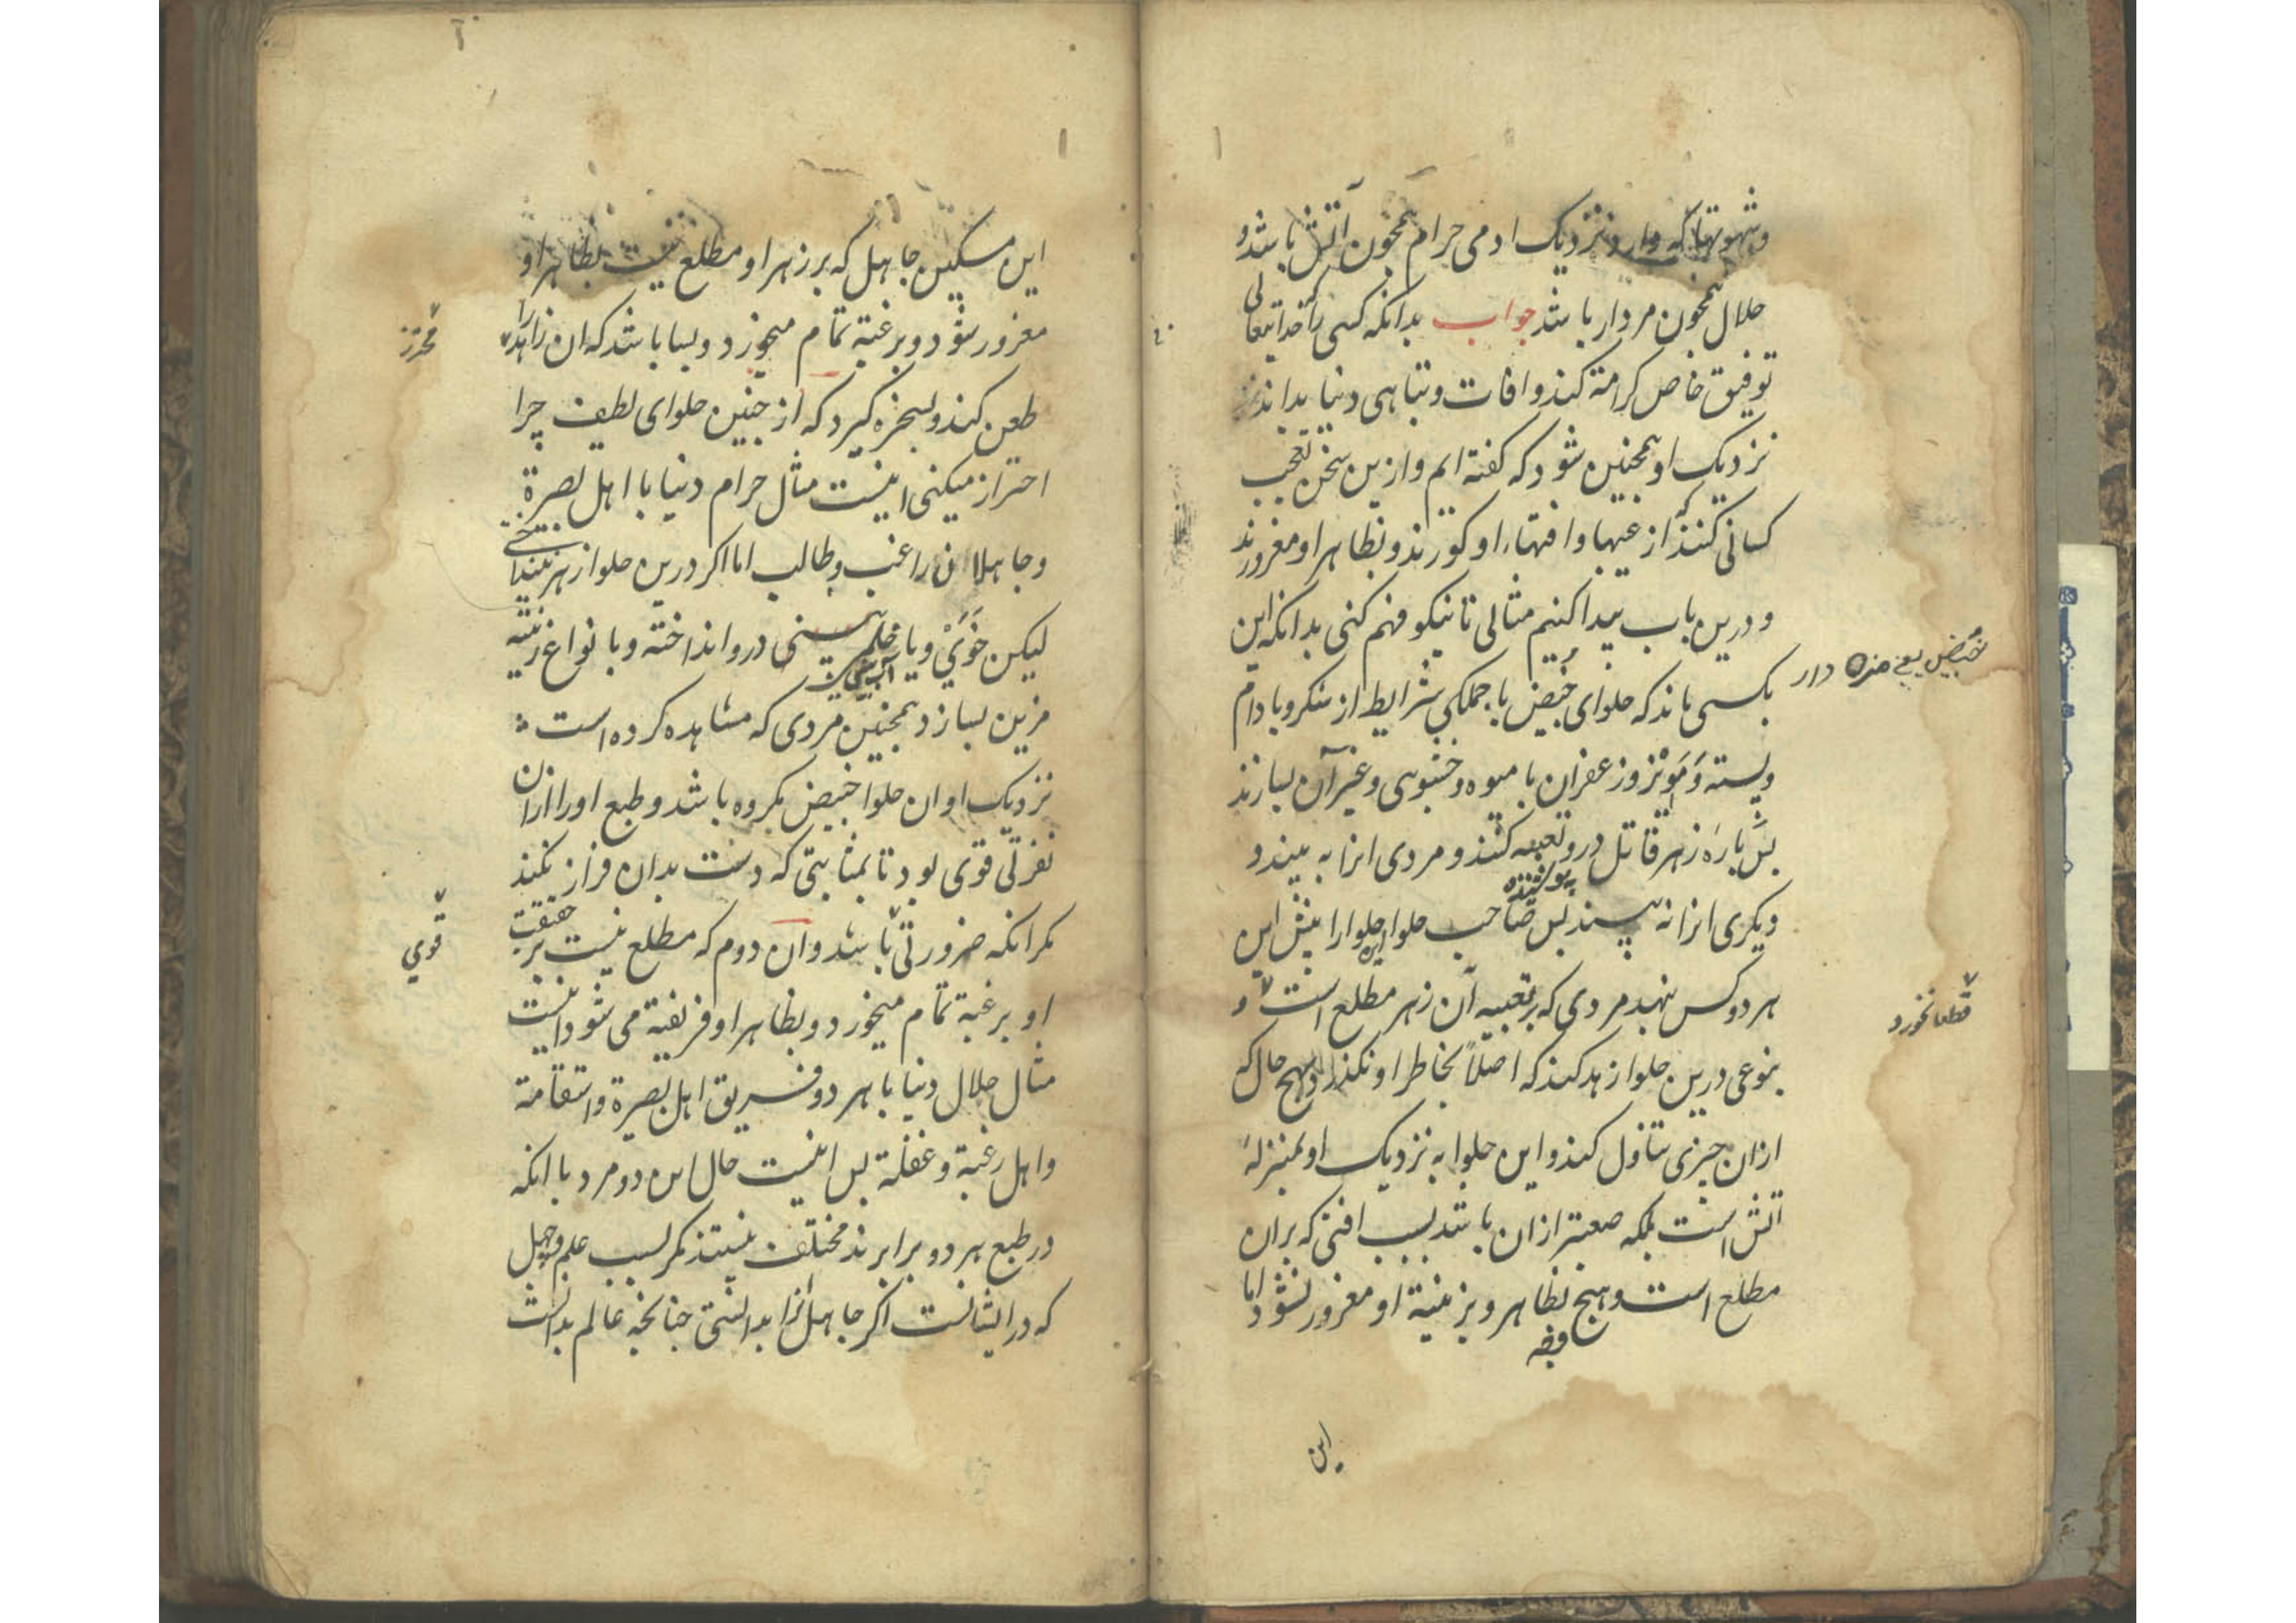 وشهوتها که وارد نزدیک ادمی حرام همچون آتش باشد و
حلال همچون مردار باشد جواب بدانکه کسی را که خدایتعالی
توفیق خاص کرامة کند و افات و تباهی دنیا بداند
نزدیک او همچنین شود که کفته ایم و ازین سخن تعجب
کسانی کنند که از عیبها و افتهاء او کورند و بظاهر او مغرورند
و درین باب پیدا کنیم مثالی تا نیکو فهم کنی بدانکه این
بکسی ماند که حلوای خبیض با جملکی شرایط از شکر و بادام
خبیض یعنی مزه دار
و پسته و مویز و زعفران با میوه و خشبوی و غیر آن بسازند
پس پارهٔ زهر قاتل درو تعبیه کنند و مردی انرا به بیند و
پوشنده
دیکری انرا نه بیند پس صاحب حلوا این حلوا را پیش این
هر دو کس بنهد مردی که بر تعبیه آن زهر مطلع است و
قطعا نخورد
بنوعی درین حلوا زهد کند که اصلاً بخاطر او نکذرد که بهیچ حال
ازان چیزی تناول کند و این حلوا به نزدیک او بمنزلهٔ
اتش است بلکه صعبتر ازان باشد بسبب افتی که بران
مطلع است و هیچ بظاهر و بزینة او مغرور نشود اما
این
این مسکین جاهل که بر زهر او مطلع نیست بظاهر او
مغرور شود و برغبة تمام میخورد و بسا باشد که ان زاهد را
محترز
طعن کند و بسخره کیرد که از چنین حلوای لطیف چرا
احتراز میکنی اینست مثال حرام دنیا با اهل بصرة
و جاهلان راغب و طالب اما اکر درین حلوا زهر نینداختی
لیکن خوی و یا خلم بینی درو انداخته و با نواع زینته
آب بینی
مزین بسازد همچنین مردی که مشاهده کرده است
نزدیک او ان حلوا خبیض مکروه باشد و طبع او را ازان
نفرتی قوی بود تا بمثابتی که دست بدان فراز نکند
مکر انکه ضرورتی باشد و ان دوم که مطلع نیست بر حقیقت
قوي
او برغبة تمام میخورد و بظاهر او فریفته می شود اینست
مثال حلال دنیا با هر دو فریق اهل بصیرة و استقامة
و اهل رغبة و غفلة پس اینست حال این دو مرد با انکه
در طبع هر دو برابرند مختلف نیستند مکر بسبب علم و جهل
که در ایشانست اکر جاهل انرا بدانستی چنانچه عالم بدانست